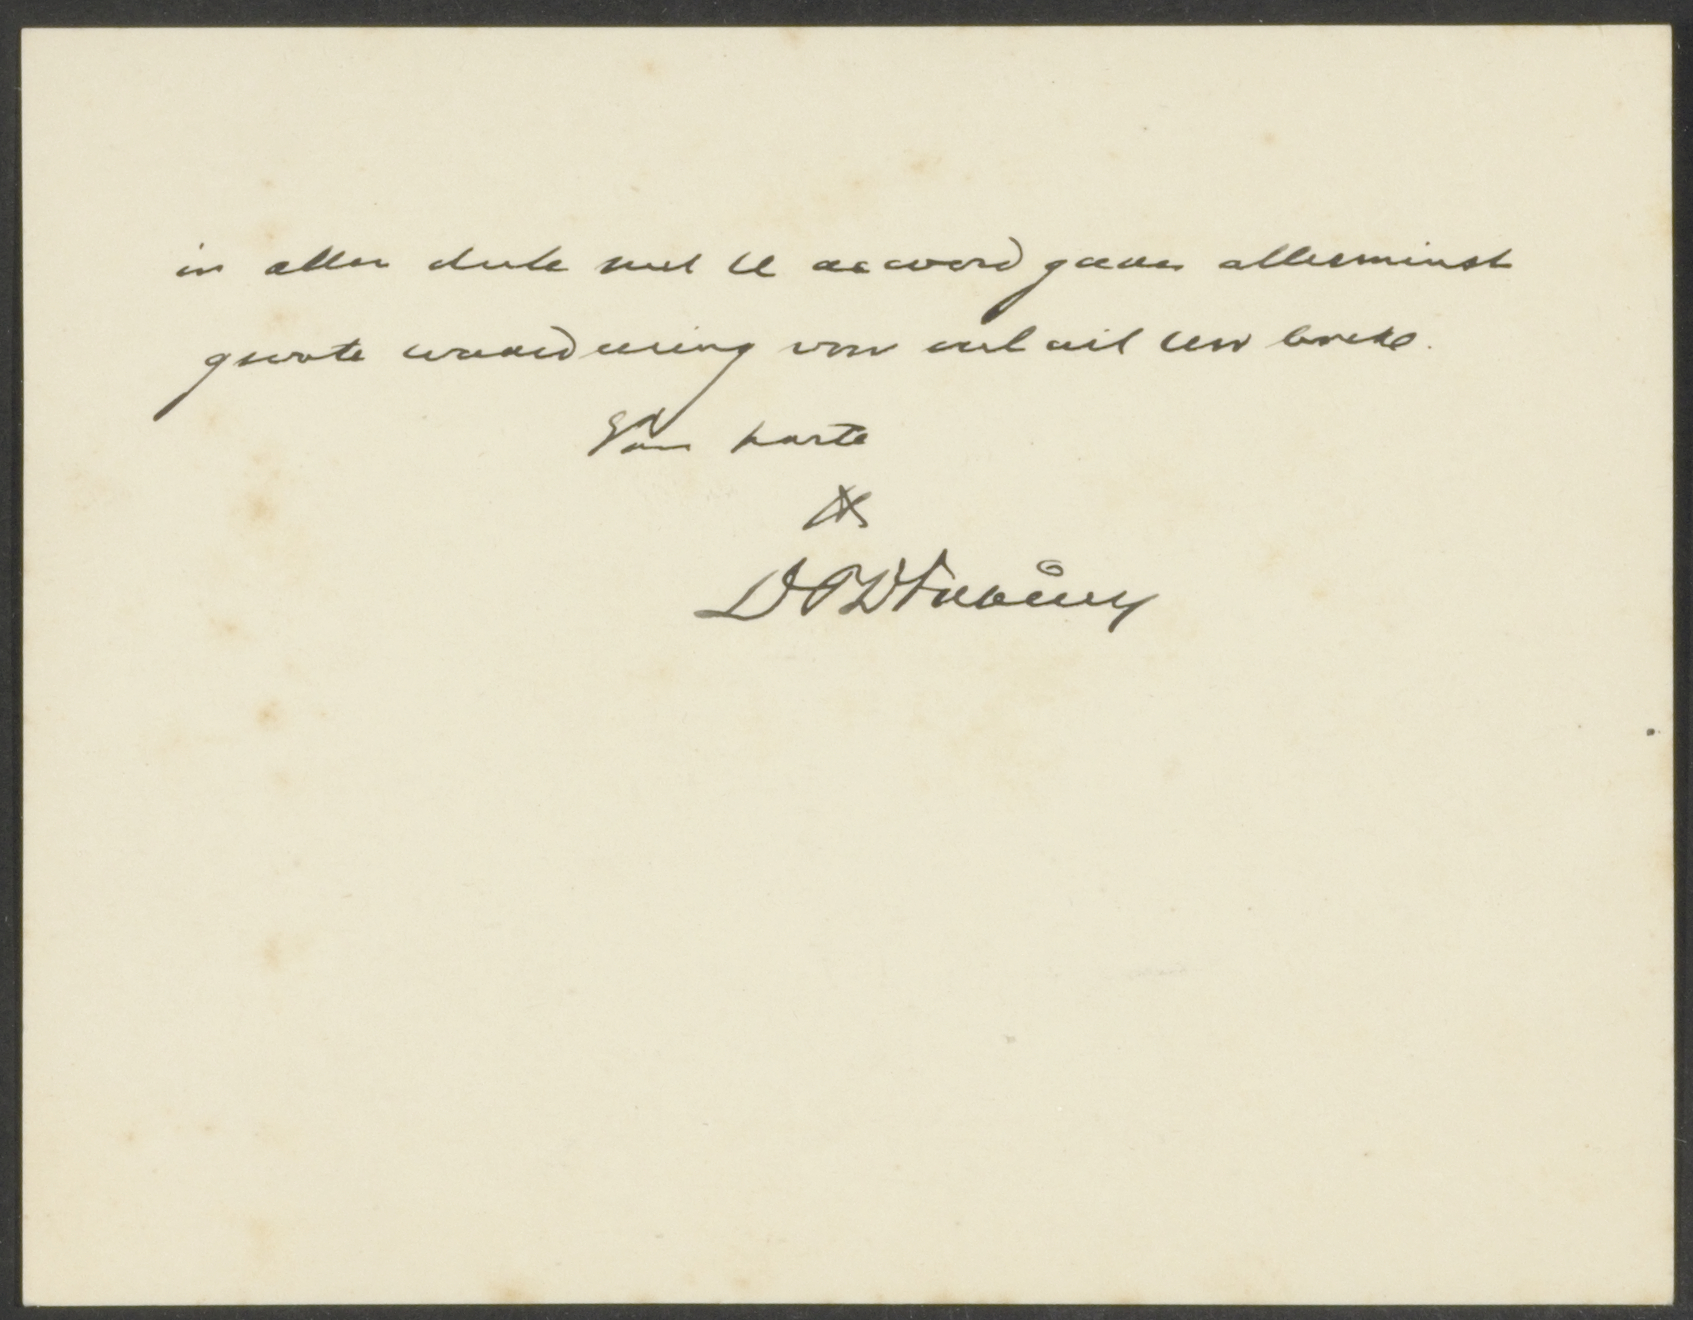 in allen deele met U accoord gaan allerminst
groote waardeering voor veel uit Uw boek.
Van harte
DPD Fabius